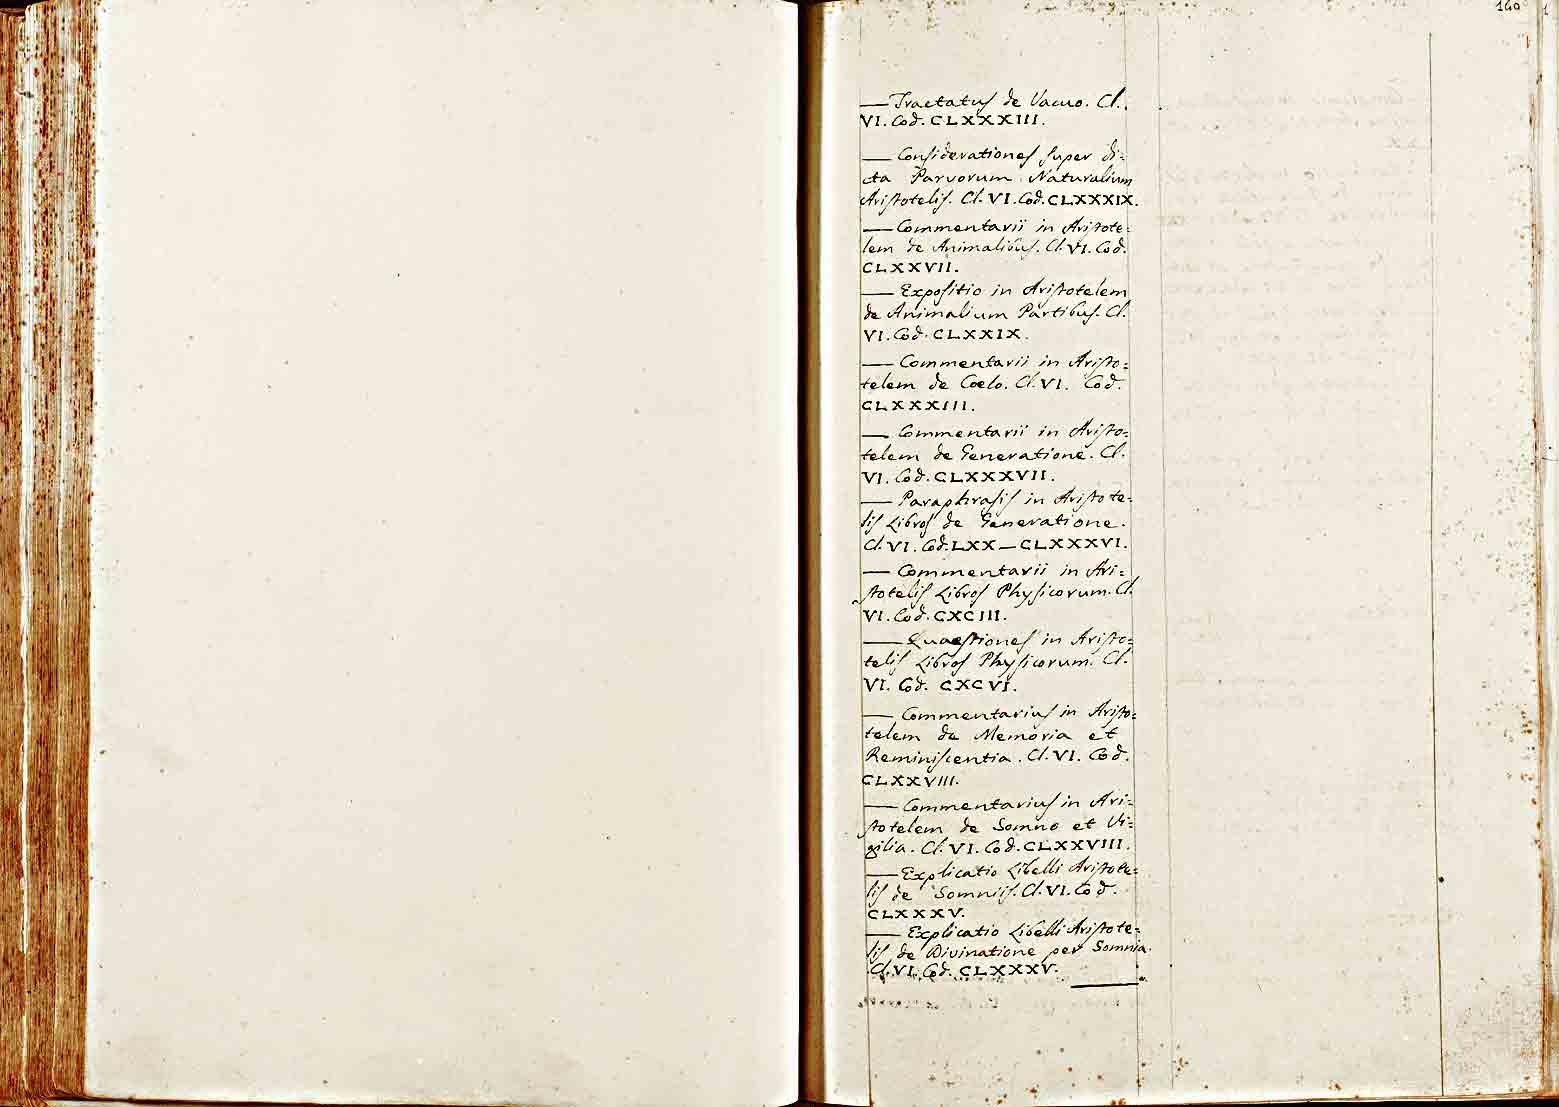 160
— Tractatuſ de Vacuo. Cl.
VI. Cod. CLXXXIII.
— Conſiderationeſ ſuper di=
cta Parvorum Naturalium
Ariſtoteliſ. Cl. VI. Cod. CLXXXIX.
— Commentarii in Ariſtote=
lem de Animalibuſ. Cl. VI. Cod.
CLXXVII.
— Expoſitio in Ariſtotelem
de Animalium Partibuſ. Cl.
VI. Cod. CLXXIX.
— Commentarii in Ariſto=
telem de Coelo. Cl. VI. Cod.
CLXXXIII.
— Commentarii in Ariſto=
telem de Generatione. Cl.
VI. Cod. CLXXXVII.
— Paraphraſiſ in Ariſtote=
liſ Libroſ de Generatione.
Cl. VI. Cod. LXX — CLXXXVI.
— Commentarii in Ari=
ſtoteliſ Libroſ Phyſicorum. Cl.
VI. Cod. CXCIII.
— Quaeſtioneſ in Ariſto=
teliſ Libroſ Phyſicorum. Cl.
VI. Cod. CXCVI.
— Commentariuſ in Ariſto=
telem de Memoria et
Reminiſcentia. Cl. VI. Cod.
CLXXVIII.
— Commentariuſ in Ari=
ſtotelem de Somno et Vi=
gilia. Cl. VI. Cod. CLXXVIII.
— Explicatio Libelli Ariſtote=
liſ de Somniiſ. Cl. VI. Cod.
CLXXXV.
— Explicatio Libelli Ariſtote=
liſ de Divinatione per Somnia.
Cl. VI. Cod. CLXXXV.